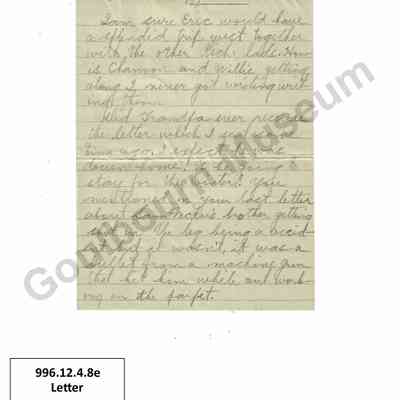 I am sure Eric would have
a splendid trip west together
with the other lads. How
is Channon and Willie getting
along I never got writing
him.
Did Grandpa ever receive
the letter which I sent some
time ago. I expect
down home! Is he going to
stay for the winter! You
mentioned in your last letter
about brother getting
shot in the leg being a accid
it wasn't, it was a
bullet from a machine gun
that hit him while out work
ing on the parpet.
Goulbourn Museum
996.12.4.8e
Letter